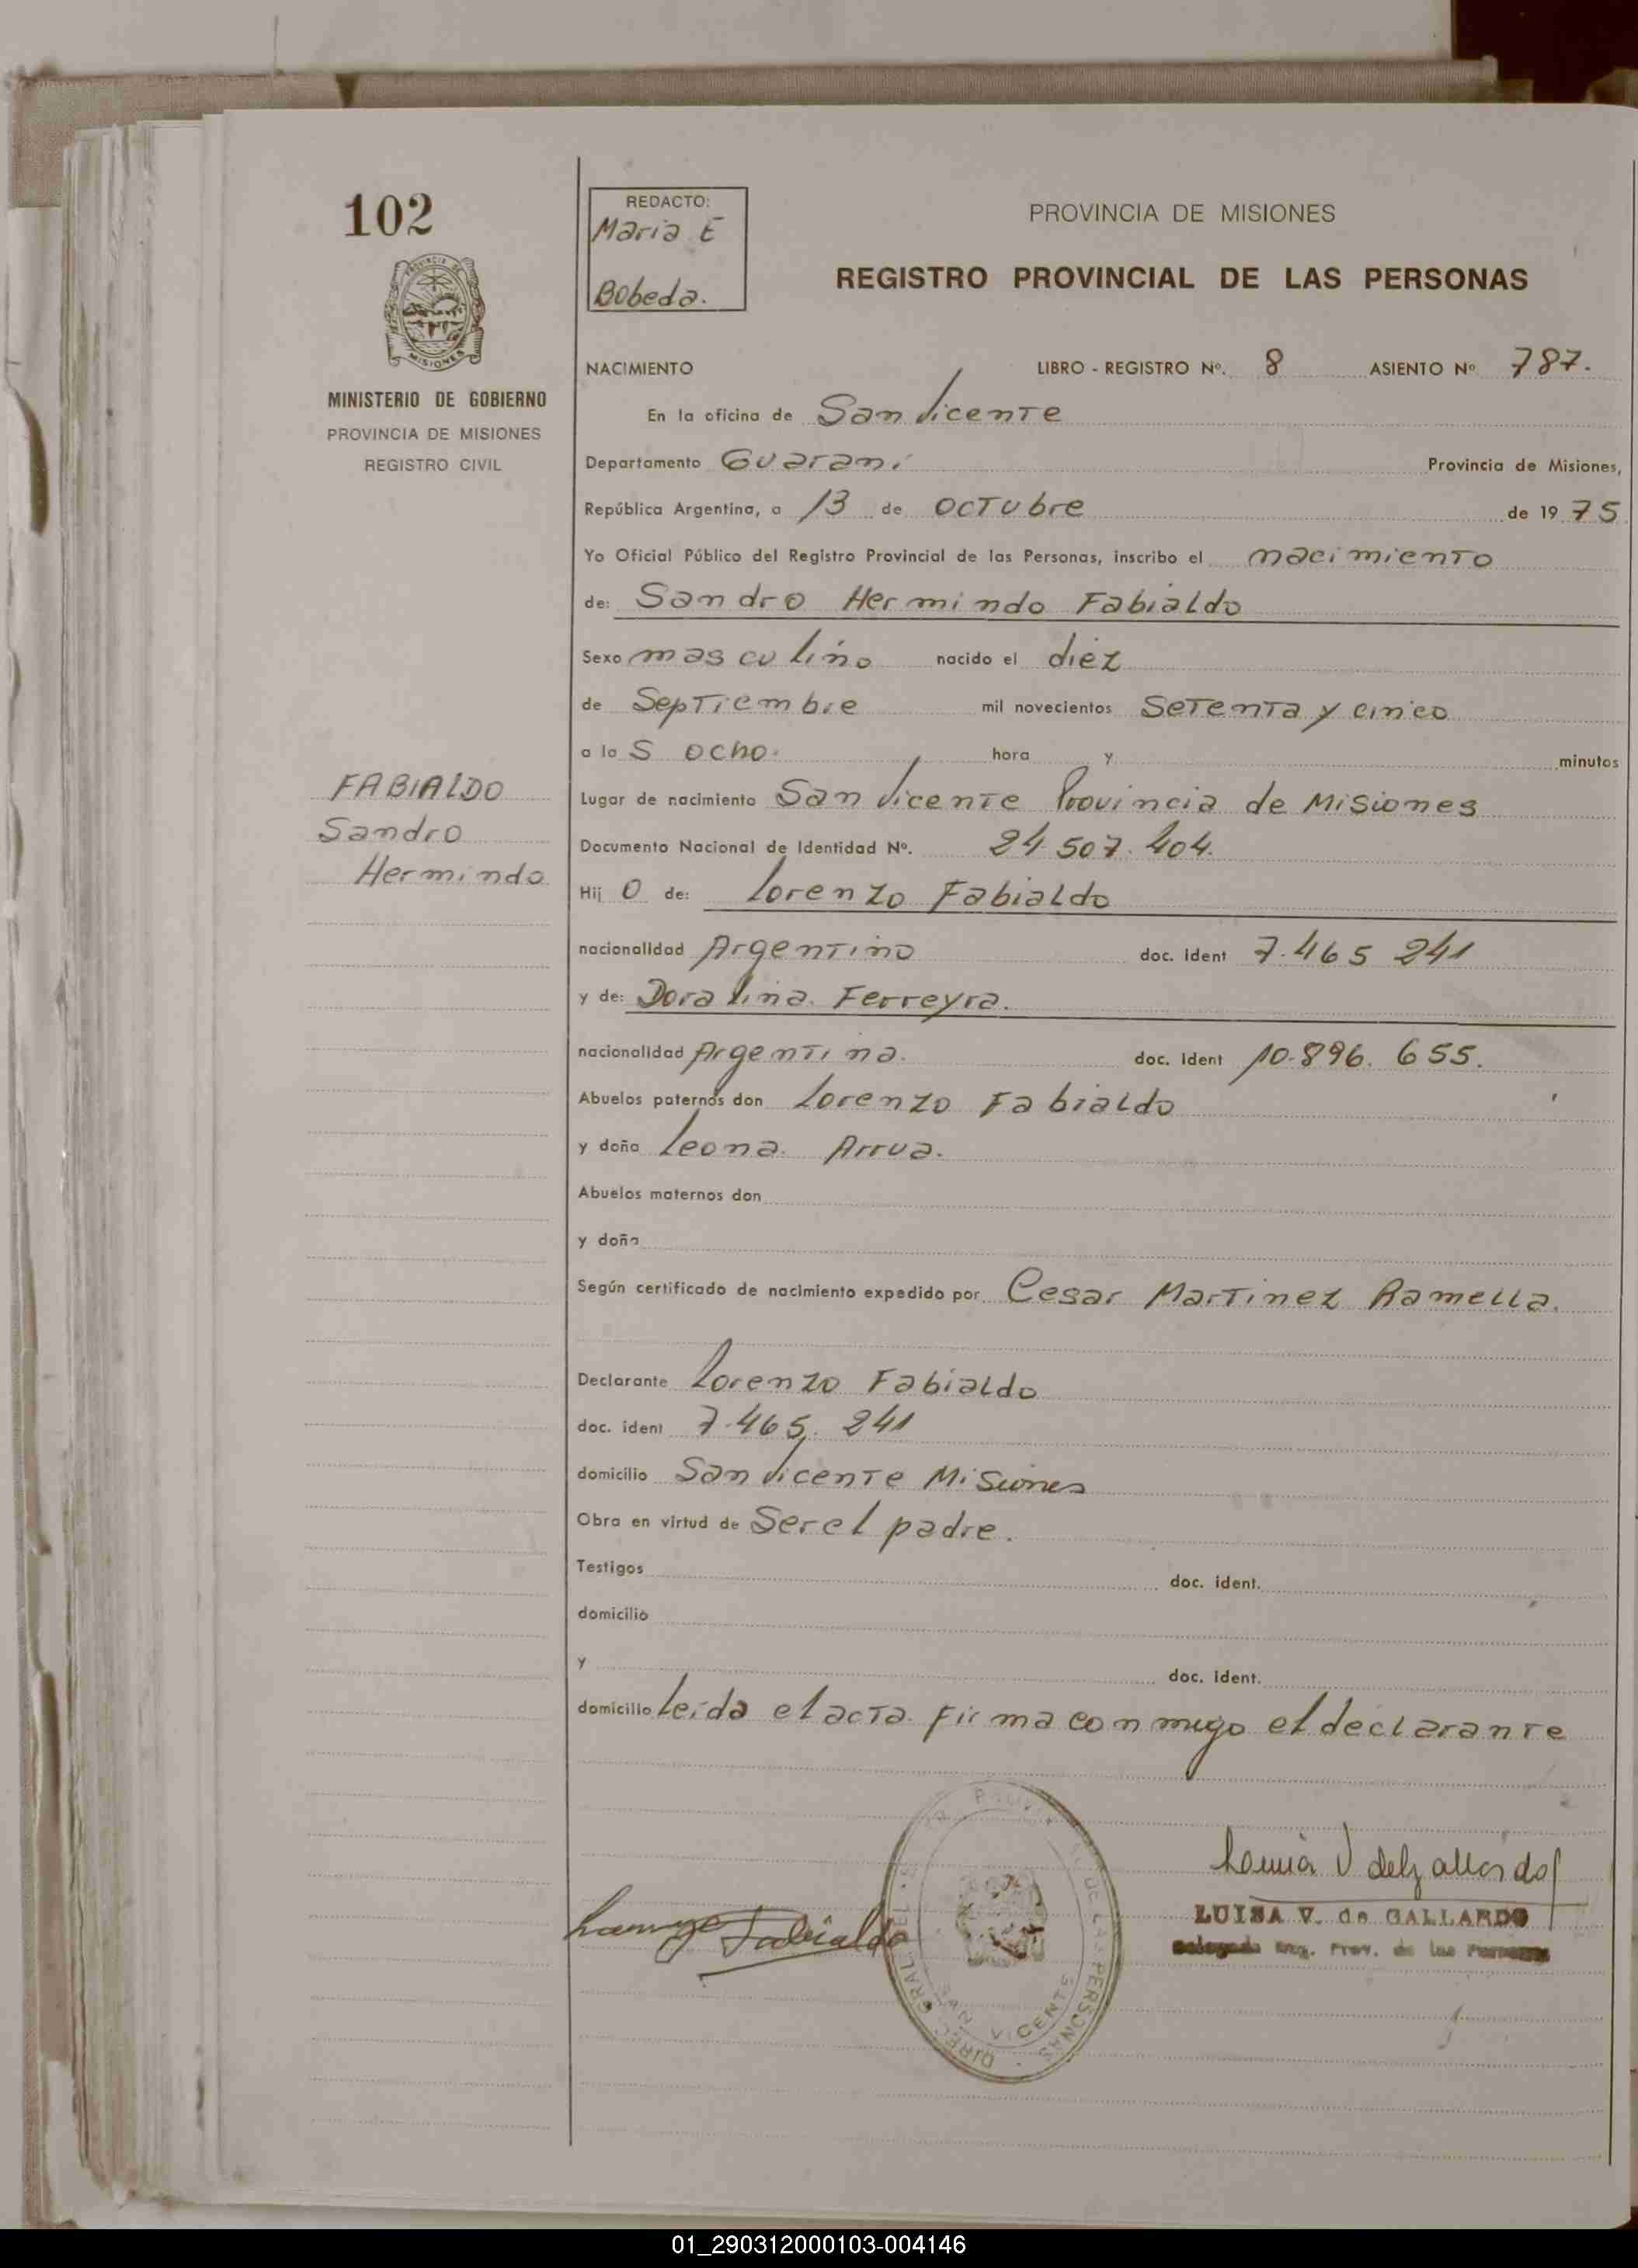 102
MINISTERIO DE GOBIERNO
PROVINCIA DE MISIONES
REGISTRO CIVIL
REDACTO:
Maria E
Bobeda.
PROVINCIA DE MISIONES
REGISTRO PROVINCIAL DE LAS PERSONAS
NACIMIENTO LIBRO - REGISTRO Nº. 8 ASIENTO Nº 787.
En la oficina de San Vicente
Departamento Guarani Provincia de Misiones,
República Argentina, a 13 de octubre de 19 75
Yo Oficial Público del Registro Provincial de las Personas, inscribo el nacimiento
de: Sandro Hermindo Fabialdo
Sexo masculino nacido el diez
de Septiembre mil novecientos Setenta y cinco
a la S ocho. hora y minutos
FABIALDO
Sandro
Hermindo
Lugar de nacimiento San Vicente Provincia de Misiones
Documento Nacional de Identidad Nº. 24.507.404.
Hij o de: Lorenzo Fabialdo
nacionalidad Argentino doc. ident 7.465 241
y de: Doralina. Ferreyra.
nacionalidad Argentina. doc. ident 10.896. 655.
Abuelos paternos don Lorenzo Fabialdo
y doña Leona. Arrua.
Abuelos maternos don
y doña
Según certificado de nacimiento expedido por Cesar Martinez Ramella.
Declarante Lorenzo Fabialdo
doc. ident 7.465. 241
domicilio San Vicente Misiones
Obra en virtud de Ser el padre.
Testigos doc. ident.
domicilio
y doc. ident.
domicilio Leída el acta firma conmigo el declarante
Fabialdo
DIREC GRAL DE LAS PERSONAS
SAN VICENTE
LUISA V. de GALLARDO
Delegada Reg. Prov. de las Personas
01_290312000103-004146